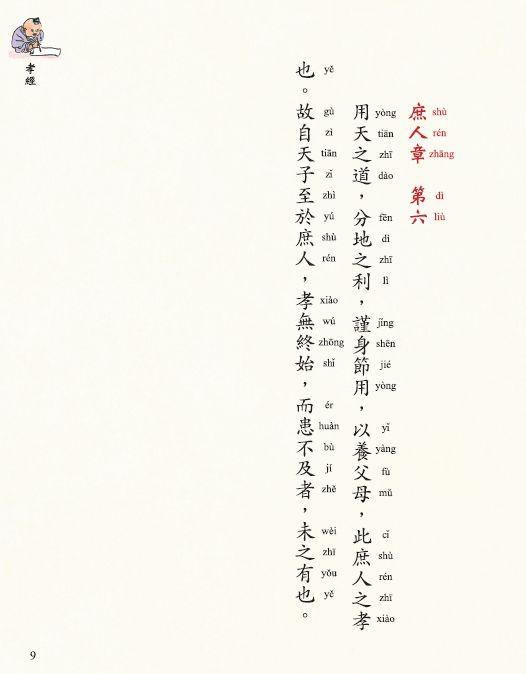 孝經
庶人章 第六
shù rén zhāng dì liù
用天之道，分地之利，謹身節用，以養父母，此庶人之孝
yòng tiān zhī dào fēn dì zhī lì jǐng shēn jié yòng yǐ yàng fù mǔ cǐ shù rén zhī xiào
也。故自天子至於庶人，孝無終始，而患不及者，未之有也。
yě gù zì tiān zǐ zhì yú shù rén xiào wú zhōng shǐ ér huàn bù jí zhě wèi zhī yǒu yě
9